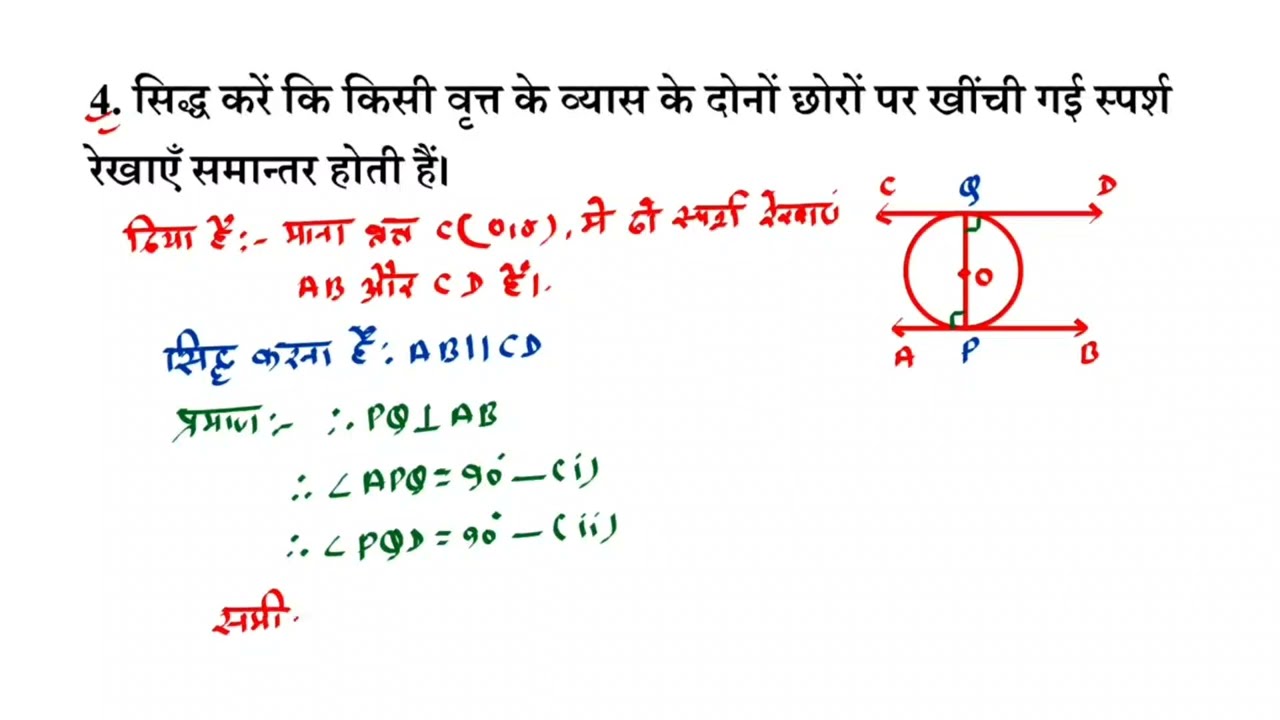 4. सिद्ध करें कि किसी वृत्त के व्यास के दोनों छोरों पर खींची गई स्पर्श
रेखाएँ समान्तर होती हैं।
दिया है:- माना वृत्त C(O,r), में दो स्पर्श रेखाएं
AB और CD हैं।
सिद्ध करना है: AB||CD
प्रमाण:- ∵ PQ⊥AB
∴ ∠APQ=90° —(i)
∴ ∠PQD=90° —(ii)
समी.
C Q D
O
A P B